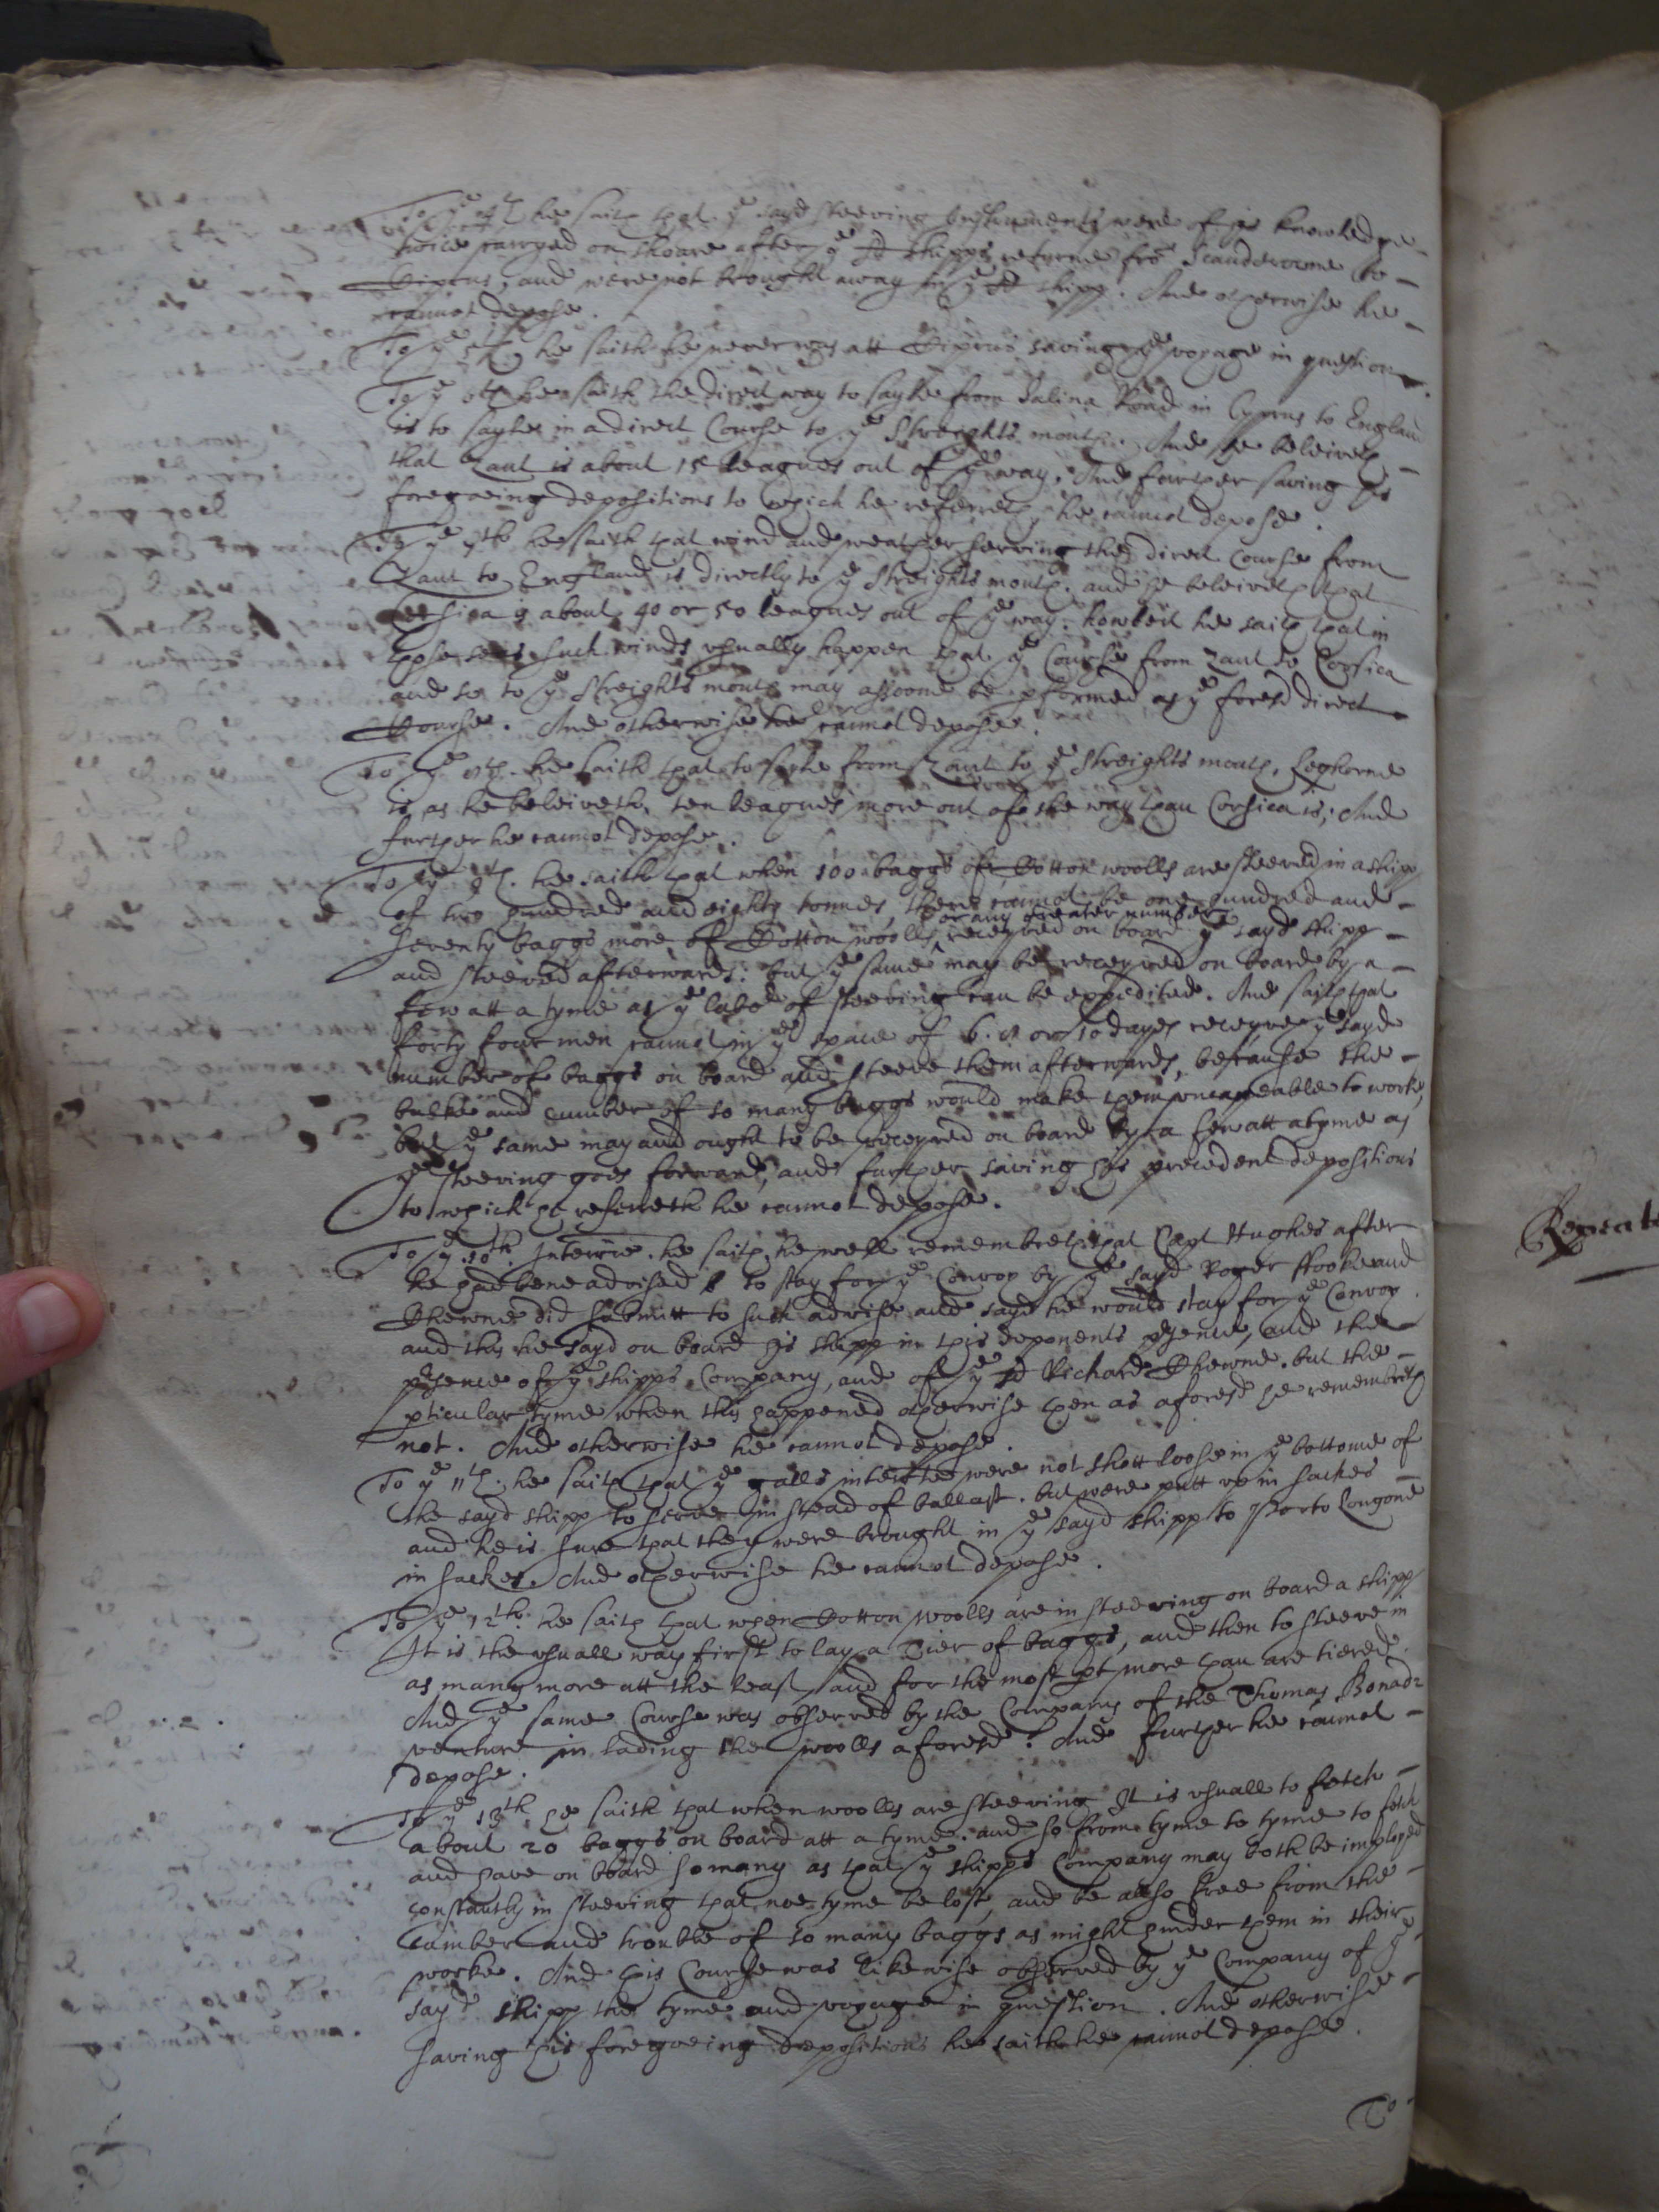 To ye 4th he saith that ye sayd steeving Instruments were of his knowledge
twice carryed on shoare after ye sd shipps returne fro Scanderoone to
Ciprus, and were not brought away in ye sd shipp. And otherwise he
cannot depose.
To ye 5th he saith he never was att Ciprus saving ye voyage in question.
To ye 6th he saith the direct way to sayle from Salina Road in Cyprus to England
is to sayle in a direct Course to ye Streights mouth. And he beleiveth
that Zant is about 15 leagues out of ye way. And further saving his
foregoeing depositions to which he referreth he cannot depose.
To ye 7th he saith that wind and weather serving the direct Course from
Zant to England is directly to ye Streights mouth. and he beleiveth that
Corsica is about 40 or 50 leagues out of ye way. howbeit he saith that in
those seas such winds usually happen that ye Course from Zant to Corsica
and so to ye Streights mouth may assoone be pformed as ye foresd direct
Course. And otherwise he cannot depose.
To ye 8th. he saith that to sayle from Zant to ye Streights mouth, Leghorne
is as he beleiveth, ten leagues more out of the way than Corsica is; And
further he cannot depose.
To ye 9th. he saith that when 100 baggs of Cotton woolls are steeved in a shipp
of two hundred and eighty tonnes, there cannot be one hundred and
or any greater number
seventy baggs more of Cotton woolls receyved on board ye sayd shipp
and steeved afterwards: but ye same may be receyved on board by a
few att a tyme as ye labor of steeving can be expedited. And saith that
forty four men cannot in ye space of 6. 8 or 10 dayes receyve ye sayd
number of baggs on board and steeve them afterwards, because the
bulke and cumber of so many baggs would make them uncapeable to worke,
but ye same may and ought to be receyved on board by a few att a tyme as
ye steeving goes forward, and further saving his precedent depositions
to which he referreth he cannot depose.
To ye 10th. Interrie. he saith he well remembreth that Capt Hughes after
he had bene advised to stay for ye Convoy by ye sayd Roger ffooke and
Chewne did submitt to such advise and sayd he would stay for ye Convoy.
and this he sayd on board his shipp in this deponents psence, and the
psence of ye shipps Company, and of ye sd Richard Chewne. but the
pticular tyme when this happened otherwise then as aforesd he remembreth
not. And otherwise he cannot depose.
To ye 11th. he saith that ye galls interrted were not shott loose in ye bottome of
the sayd shipp to serve in stead of ballast. but were putt up in sackes
and he is sure that they were brought in ye sayd shipp to Porto Longone
in sackes. And otherwise he cannot depose.
To ye 12th. he saith that when Cotton woolls are in steeving on board a shipp
It is the usuall way first to lay a Tier of baggs, and then to steeve in
as many more att the least, and for the most pt more than are tiered.
And ye same Course was observed by the Company of the Thomas Bonad-
venture in lading the woolls aforesd. And further he cannot
depose.
To ye 13th he saith that when woolls are steeving It is usuall to fetch
about 20 baggs on board att a tyme. and so from tyme to tyme to fetch
and have on board so many as that ye shipps Company may both be imployed
constantly in steeving that noe tyme be lost, and be allso free from the
Cumber and trouble of so many baggs as might hinder them in their
worke. And this Course was likewise observed by ye Company of ye
sayd shipp the tyme and voyage in question. And otherwise
saving his foregoeing depositions he saith he cannot depose.
To